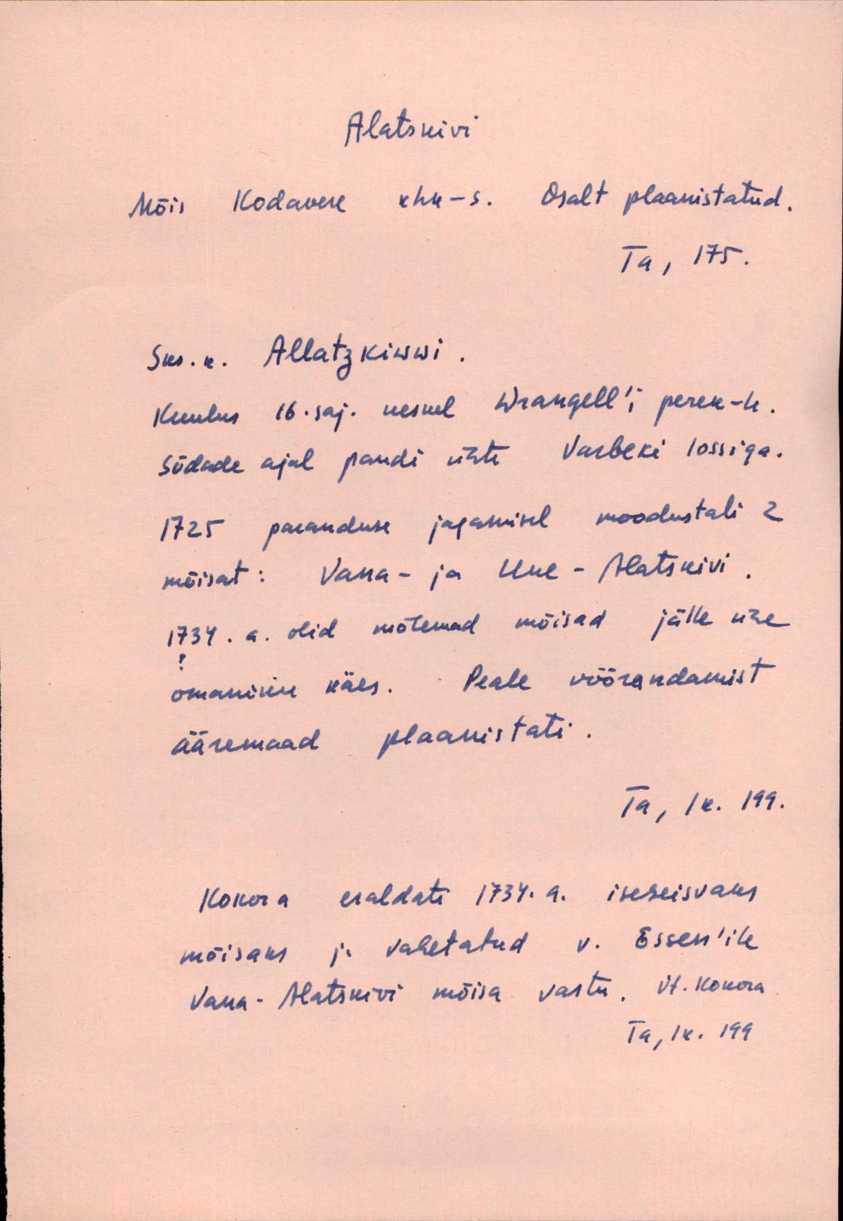 Alatskivi
Mõis Kodavere khk-s. Osalt plaanistatud.
Ta, 175.
Sks.k. Allatzkiwwi.
Kuulus 16. saj. keskel Wrangell'i perek-k.
Sõdade ajal pandi ühte Varbeki lossiga.
1725 paranduse jagamisel moodustati 2
mõisat: Vana- ja Uue-Alatskivi.
1734. a. olid mõlemad mõisad jälle ühe
!
omaniku käes. Peale võõrandamist
ääremaad plaanistati.
Ta, lk. 199.
Kokora eraldati 1734. a. iseseisvaks
mõisaks ja vahetatud v. Essen'ile
Vana-Alatskivi mõisa vastu. vt. Kokora
Ta, lk. 199